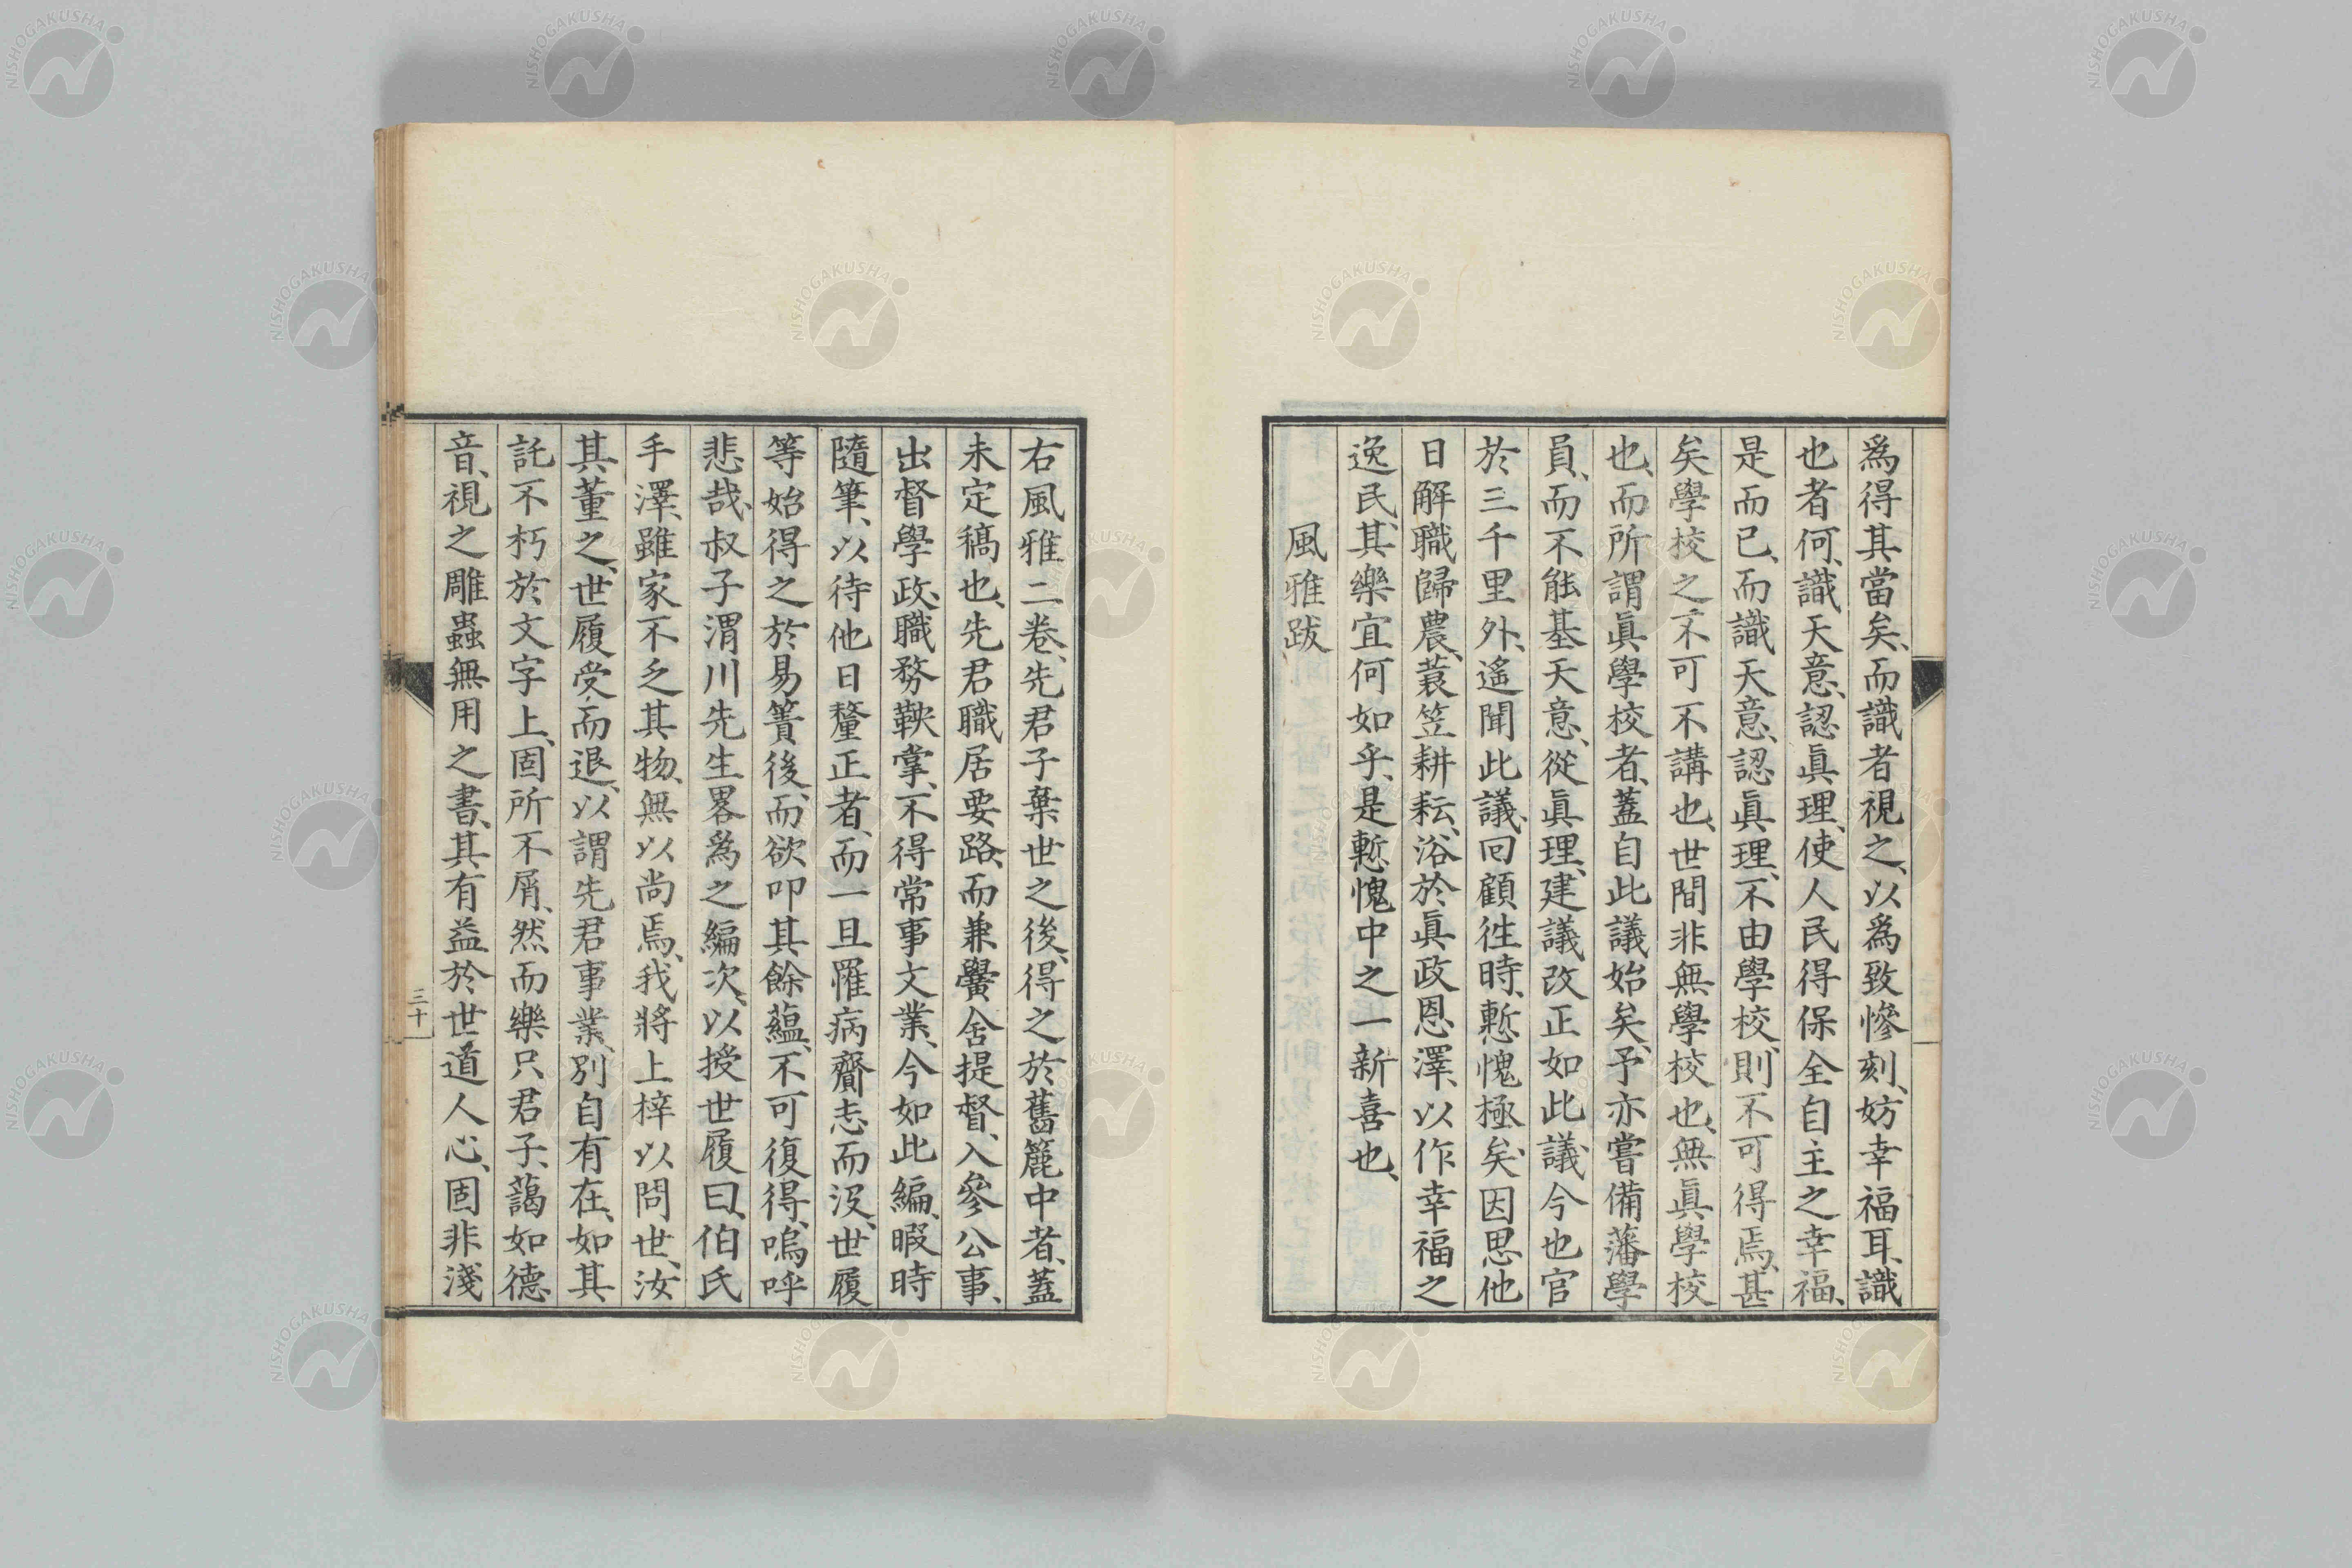 爲得其當矣、而識者視之、以爲致慘刻、妨幸福耳、識
也者何、識天意、認眞理、使人民得保全自主之幸福、
是而已、而識天意、認眞理、不由學校、則不可得焉、甚
矣學校之不可不講也、世間非無學校也、無眞學校
也、而所謂眞學校者、蓋自此議始矣、予亦嘗備藩學
員、而不能基天意、從眞理、建議改正如此議、今也官
於三千里外、遙聞此議、回顧往時、慙愧極矣、因思他
日解職歸農、蓑笠耕耘、浴於眞政恩澤、以作幸福之
逸民、其樂宜何如乎、是慙愧中之一新喜也、
風雅跋
右風雅二卷、先君子棄世之後、得之於舊簏中者、蓋
未定稿也、先君職居要路、而兼黌舍提督、入參公事、
出督學政、職務鞅掌、不得常事文業、今如此編、暇時
隨筆、以待他日釐正者、而一旦罹病齎志而沒、世履
等始得之於易簀後、而欲叩其餘蘊、不可復得、嗚呼
悲哉、叔子渭川先生畧爲之編次、以授世履曰、伯氏
手澤、雖家不乏其物、無以尚焉、我將上梓以問世、汝
其董之、世履受而退、以謂先君事業、別自有在、如其
託不朽於文字上、固所不屑、然而樂只君子、藹如德
音、視之雕蟲無用之書、其有益於世道人心、固非淺
三十
NISHOGAKUSHA